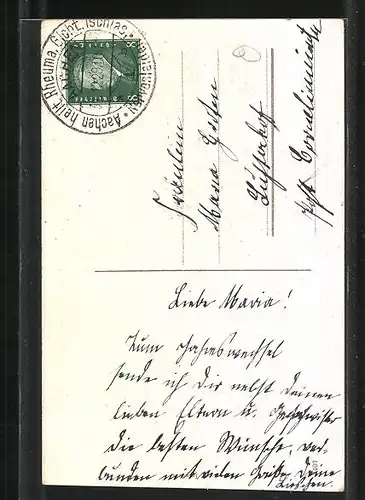 Aachen heilt Rheuma, Gicht, Ischias
8 8
Fräulein
Maria
Post Cornelimünster
Liebe Maria!
Zum Jahreswechsel
sende ich Dir nebst Deinen
lieben Eltern u. Geschwister
die besten Wünsche, ver-
bunden mit vielen Grüßen Deine
Lieschen.